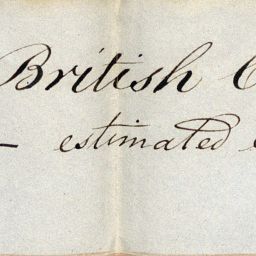 British
— estimated